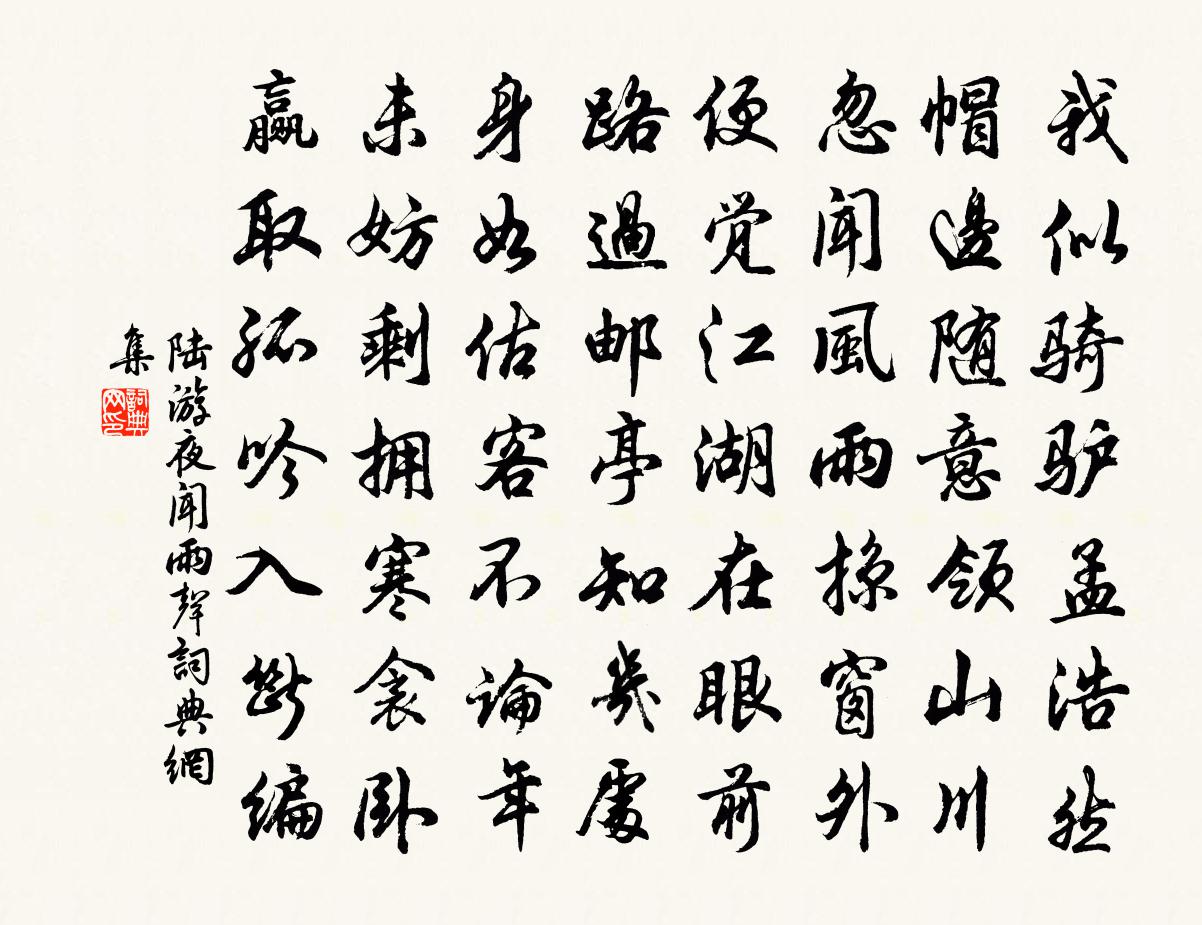 我似骑驴孟浩然
帽邊随意領山川
忽聞風雨掠窗外
便觉江湖在眼前
路過邮亭知幾處
身如估客不論年
未妨剩拥寒衾卧
赢取孤吟入断编
陆游夜闻雨聲詞典網
集
詞典
网印